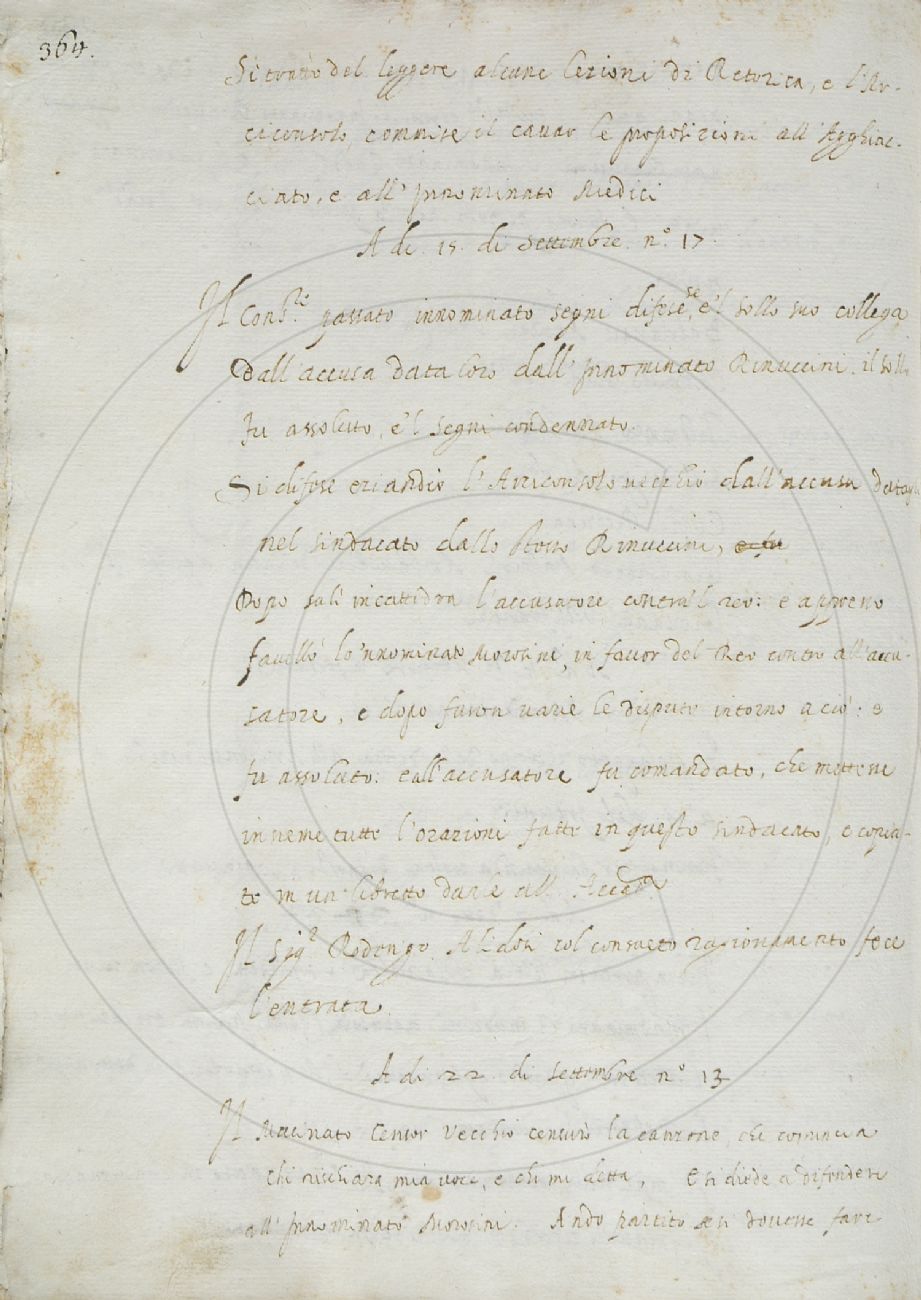 364.
Si trattò del leggere alcune lezioni di Retorica, e l'Ar-
ciconsolo, commise il cavar le proposizioni all' Agghiac-
ciato, e all' Innominato Medici
A di 15. di Settembre. n.º 17.
Il Cons.re passato innominato segni difese se, e'l sollo suo collega
dall'accusa data loro dall' Innominato Rinuccini. il sollo
fu assoluto, e'l segni condennato.
Si difese eziandio l'Arciconsolo vecchio dall'accusa datagli
nel sindacato dallo stesso Rinuccini, e fu
Dopo salì in cattedra l'accusatore contra'l reo: e appresso
favellò lo'nnominato Morosini in favor del Reo contro all'accu-
satore, e dopo furon varie le dispute intorno a ciò: e
fu assoluto: e all'accusatore fu comandato, che mettesse
insieme tutte l'orazioni fatte in questo sindacato, e copia-
te in un libretto darle all' Accad.a
Il Sig.r Rodorigo Alidosi col consueto ragionamento fece
l'entrata.
A di 22. di settembre n.º 13
Il Macinato Censor Vecchio censurò la canzone, che comincia
Chi rischiara mia voce, e chi mi detta, E si diede a difendere
all' Innominato Morosini. Andò partito se si dovesse fare